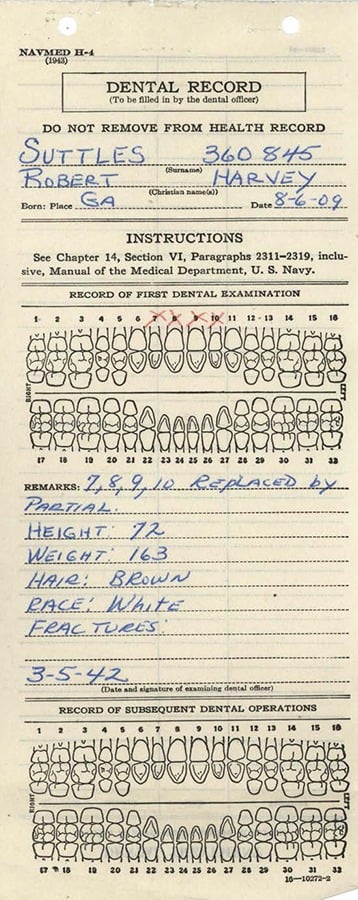 NAVMED H-4
(1943)
DENTAL RECORD
(To be filled in by the dental officer)
DO NOT REMOVE FROM HEALTH RECORD
SUTTLES 360 845
(Surname)
ROBERT HARVEY
(Christian name(s))
Born: Place GA Date 8-6-09
INSTRUCTIONS
See Chapter 14, Section VI, Paragraphs 2311–2319, inclu-
sive, Manual of the Medical Department, U. S. Navy.
RECORD OF FIRST DENTAL EXAMINATION
1 2 3 4 5 6 7 8 9 10 11 12 13 14 15 16
RIGHT LEFT
17 18 19 20 21 22 23 24 25 26 27 28 29 30 31 32
REMARKS: 7, 8, 9, 10 Replaced by
PARTIAL.
HEIGHT: 72
WEIGHT: 163
HAIR: BROWN
RACE: White
FRACTURES:
3-5-42
(Date and signature of examining dental officer)
RECORD OF SUBSEQUENT DENTAL OPERATIONS
1 2 3 4 5 6 7 8 9 10 11 12 13 14 15 16
RIGHT LEFT
17 18 19 20 21 22 23 24 25 26 27 28 29 30 31 32
16—10272-2